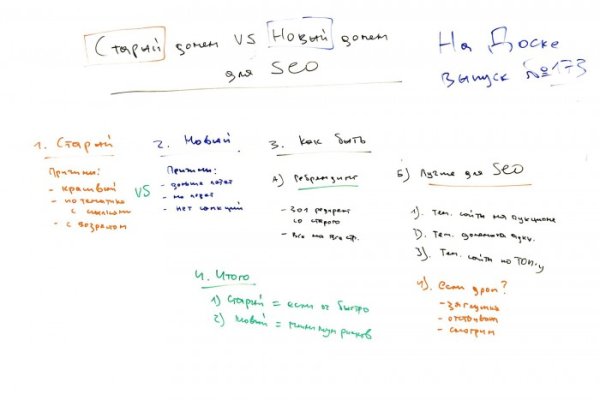 Старый домен VS Новый домен
для SEO
На Доске
выпуск №173
1. Старый
Причины:
- красивый
- по тематике
с ссылками
- с возрастом
VS
2. Новый
Причины:
- дольше
- нет санкций
3. Как быть
А) Ребрендинг
- 301 редирект
со старого
- все на все стр.
Б) Лучше для SEO
1). Тем. сайты на аукционе
2). Тем. домены
3). Тем. сайты по ТОП-у
4). если дроп?
- загрузка
- отстоять
- смотрим
4. Итого
1) Старый = если оч быстро
2) Новый = минимум рисков